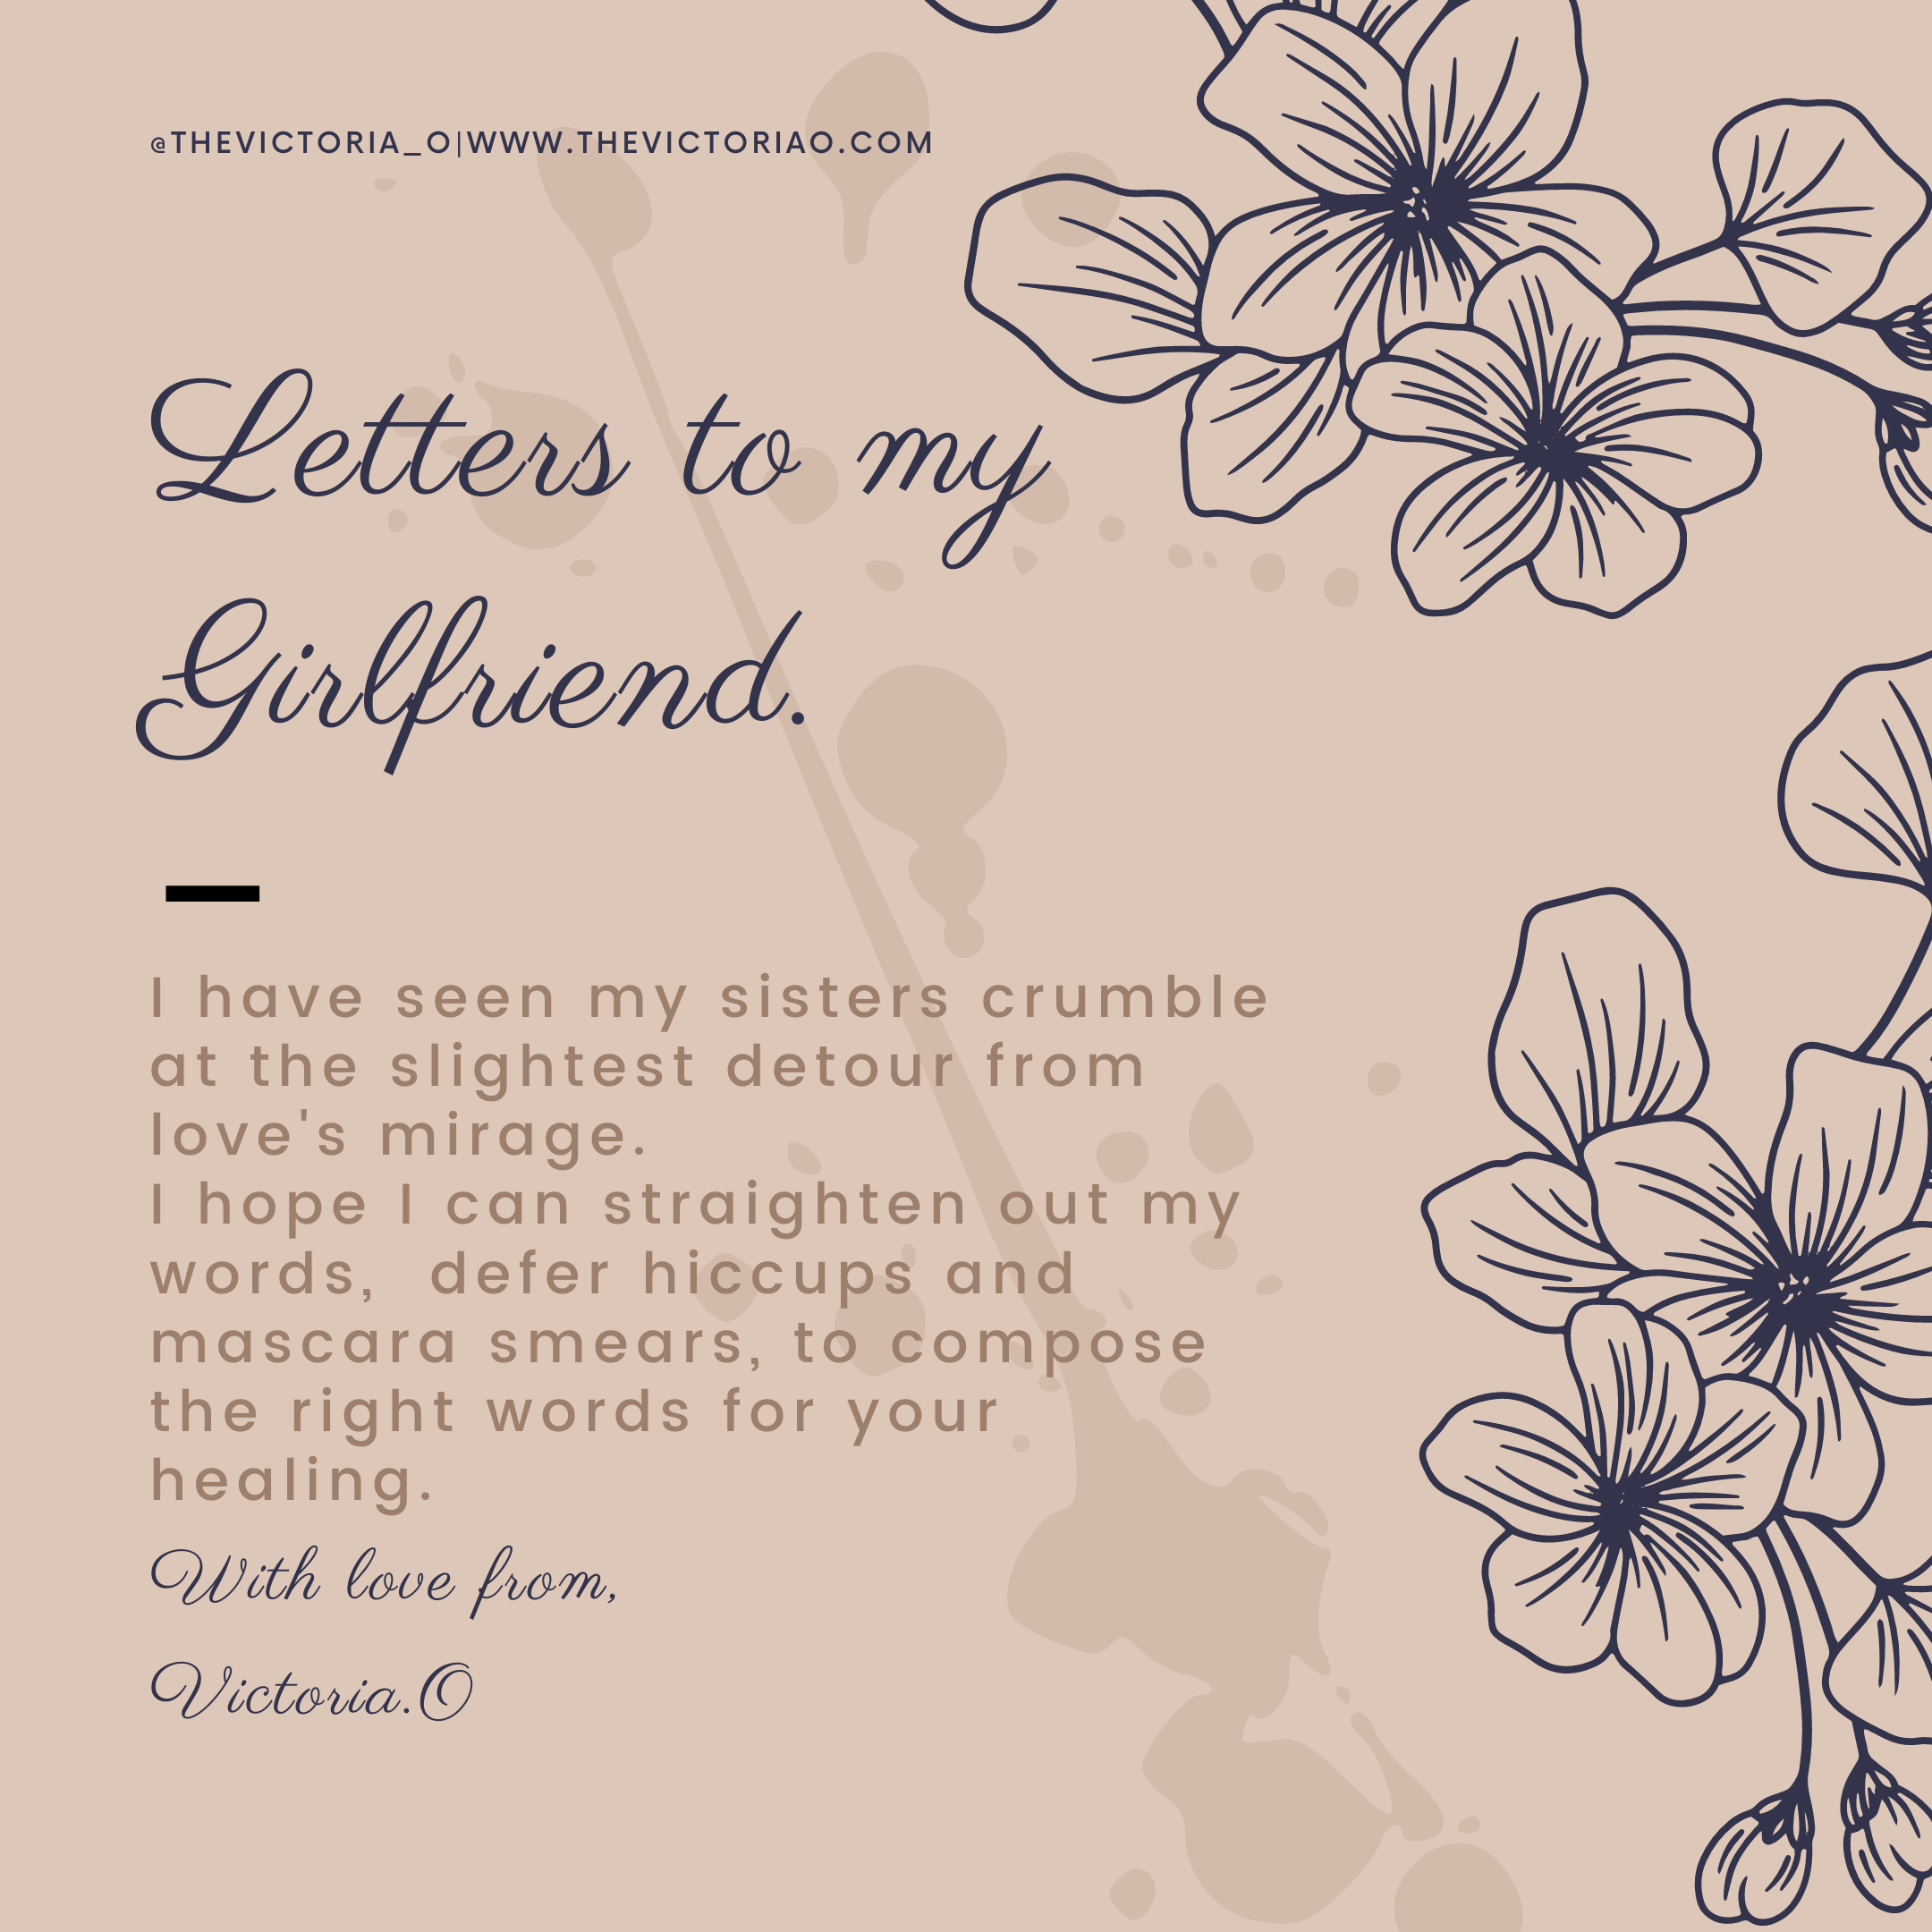 @THEVICTORIA_O|WWW.THEVICTORIAO.COM
Letters to my
Girlfriend.
I have seen my sisters crumble
at the slightest detour from
love's mirage.
I hope I can straighten out my
words,  defer hiccups and
mascara smears, to compose
the right words for your
healing.
With love from,
Victoria.O